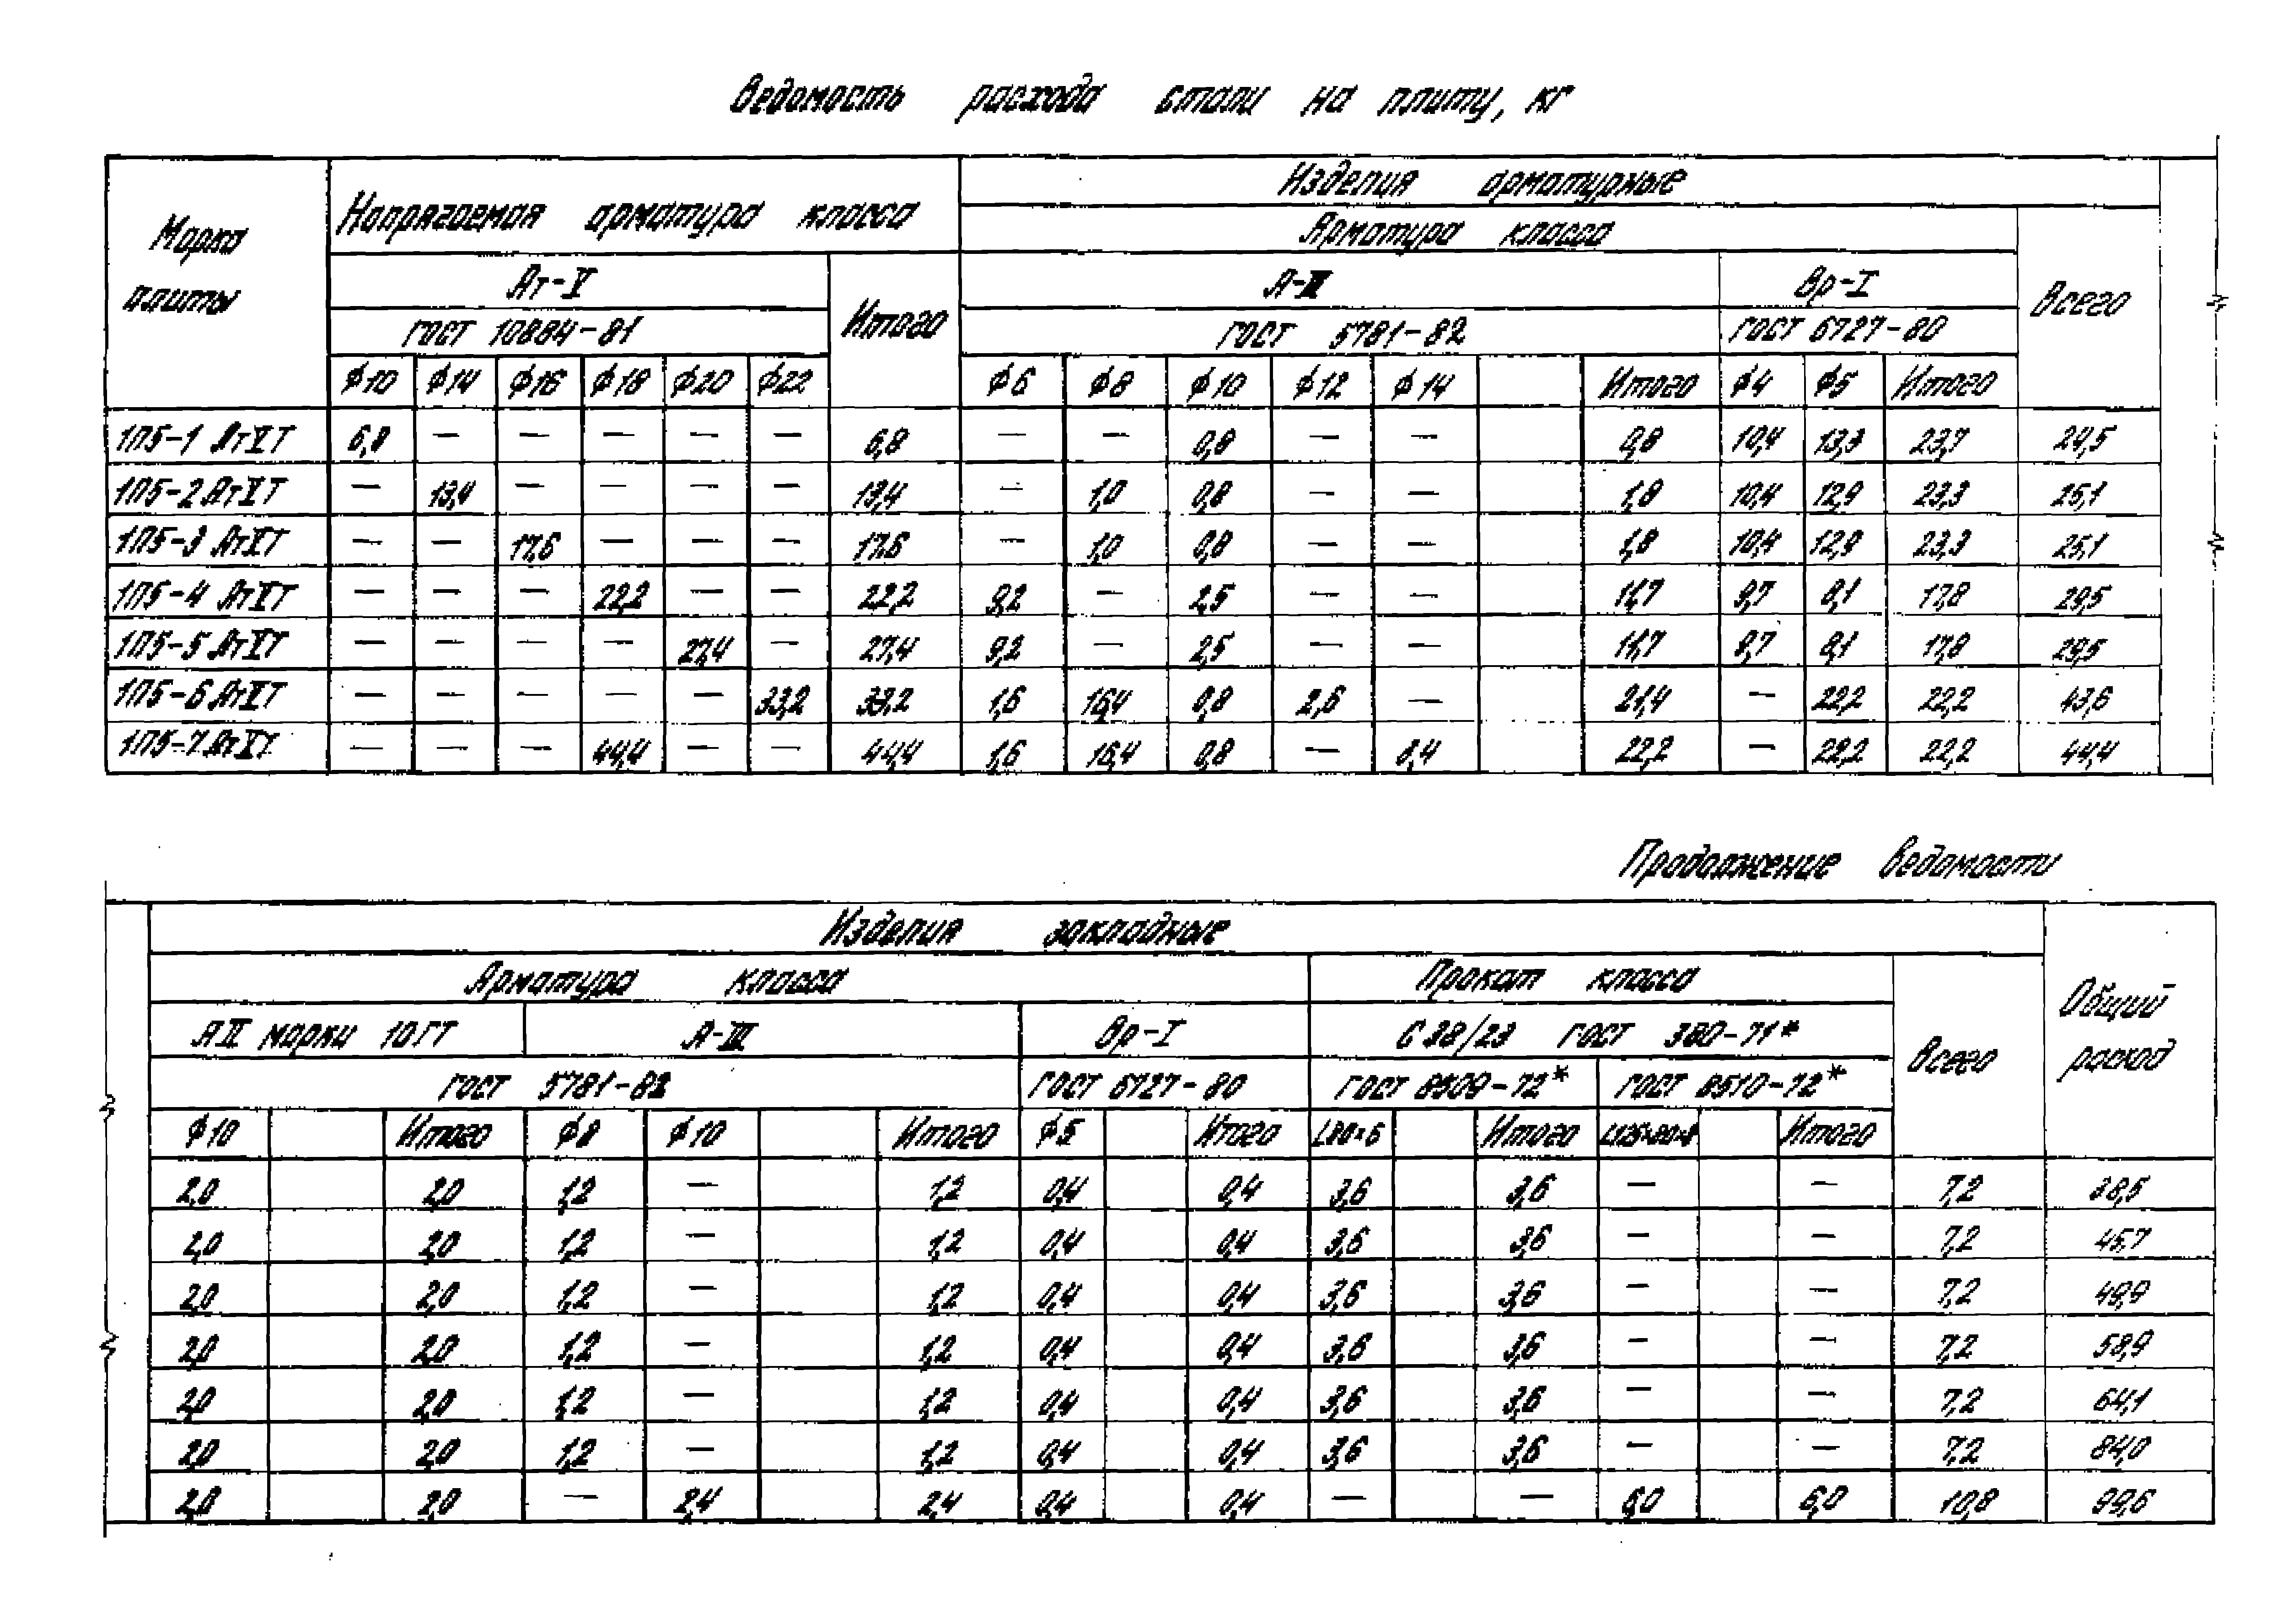 Ведомость расхода стали на плиту, кг
Марка плиты
Напрягаемая арматура класса
Изделия арматурные
Арматура класса
Ат-V
Итого
А-III
Вр-I
Всего
ГОСТ 10884-81
ГОСТ 5781-82
ГОСТ 6727-80
Ф10 Ф14 Ф16 Ф18 Ф20 Ф22 Ф6 Ф8 Ф10 Ф12 Ф14 Итого Ф4 Ф5 Итого
1П5-1 АтVТ 6,8 — — — — — 6,8 — — 0,8 — — 0,8 10,4 13,3 23,7 24,5
1П5-2 АтVТ — 13,4 — — — — 13,4 — 1,0 0,8 — — 1,8 10,4 12,9 23,3 25,1
1П5-3 АтVТ — — 17,6 — — — 17,6 — 1,0 0,8 — — 1,8 10,4 12,9 23,3 25,1
1П5-4 АтVТ — — — 22,2 — — 22,2 9,2 — 2,5 — — 11,7 9,7 8,1 17,8 29,5
1П5-5 АтVТ — — — — 27,4 — 27,4 9,2 — 2,5 — — 11,7 9,7 8,1 17,8 29,5
1П5-6 АтVТ — — — — — 33,2 33,2 1,6 16,4 0,8 2,6 — 21,4 — 22,2 22,2 43,6
1П5-7 АтVТ — — — 44,4 — — 44,4 1,6 16,4 0,8 — 3,4 22,2 — 22,2 22,2 44,4
Продолжение ведомости
Изделия закладные
Общий расход
Арматура класса
Прокат класса
Всего
АII марки 10ГТ
А-III
Вр-I
С38/23 ГОСТ 380-71*
ГОСТ 5781-82
ГОСТ 6727-80
ГОСТ 8509-72*
ГОСТ 8510-72*
Ф10 Итого Ф8 Ф10 Итого Ф5 Итого L80×6 Итого L125×80×8 Итого
2,0 2,0 1,2 — 1,2 0,4 0,4 3,6 3,6 — — 7,2 38,5
2,0 2,0 1,2 — 1,2 0,4 0,4 3,6 3,6 — — 7,2 45,7
2,0 2,0 1,2 — 1,2 0,4 0,4 3,6 3,6 — — 7,2 49,9
2,0 2,0 1,2 — 1,2 0,4 0,4 3,6 3,6 — — 7,2 58,9
2,0 2,0 1,2 — 1,2 0,4 0,4 3,6 3,6 — — 7,2 64,1
2,0 2,0 1,2 — 1,2 0,4 0,4 3,6 3,6 — — 7,2 84,0
2,0 2,0 — 2,4 2,4 0,4 0,4 — — 6,0 6,0 10,8 99,6